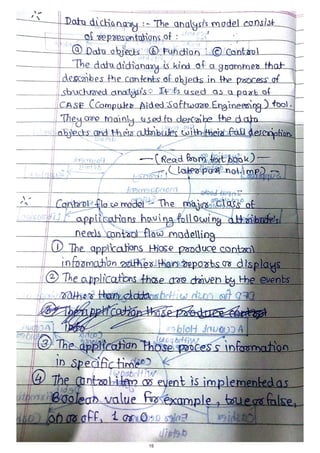 Data dictionary :- The analysis model consist
of representations of :
ⓐ Data objects ⓑ Function ⓒ Control
The data dictionary is kind of a grammer that
describes the contents of objects in the process of
structured analysis. It is used as a part of
CASE (Computer Aided Software Engineering) tool.
They are mainly used to describe the data
objects and their attributes with their full description
— (Read from text book) —
(Later part not imp)
Control flow model - The major class of
applications having following attribute's
needs control flow modelling
① The applications those produce control
information rather than reports or displays
② The applications those are driven by the events
rather than data
③ The application those produce control
info
③ The application those process information
in specific time
④ The control item or event is implemented as
Boolean value For example, true or false,
on or off, 1 or 0